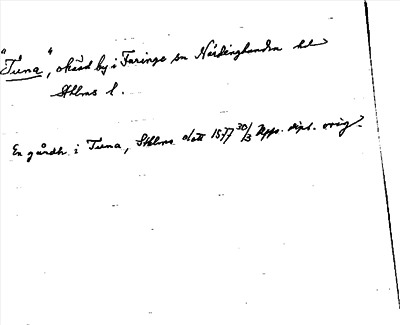 "Tuna", okänd by i Faringe sn Närdinghundra hd
Sthlms l.
En gårdh i Tuna, Sthlms slott 1577 30/3 Upps. dipl. orig.